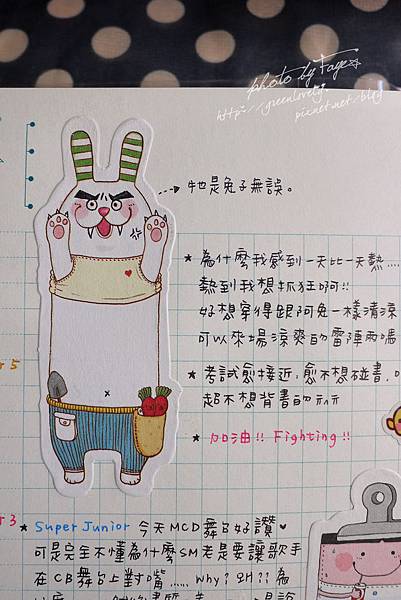 photo by Faye
http://greenlovely.
pixnet.net/blog
牠是兔子無誤。
★ 為什麼我感到一天比一天熱.....
熱到我想抓狂啊!!
好想穿得跟阿兔一樣清涼
可以來場涼爽的雷陣雨嗎
★ 考試愈接近,愈不想碰書,
超不想背書的
★ 加油!! Fighting!!
★ Super Junior 今天MCD舞台好讚♥
可是完全不懂為什麼SM老是要讓歌手
在CB舞台上對嘴..... why? 왜?? 為